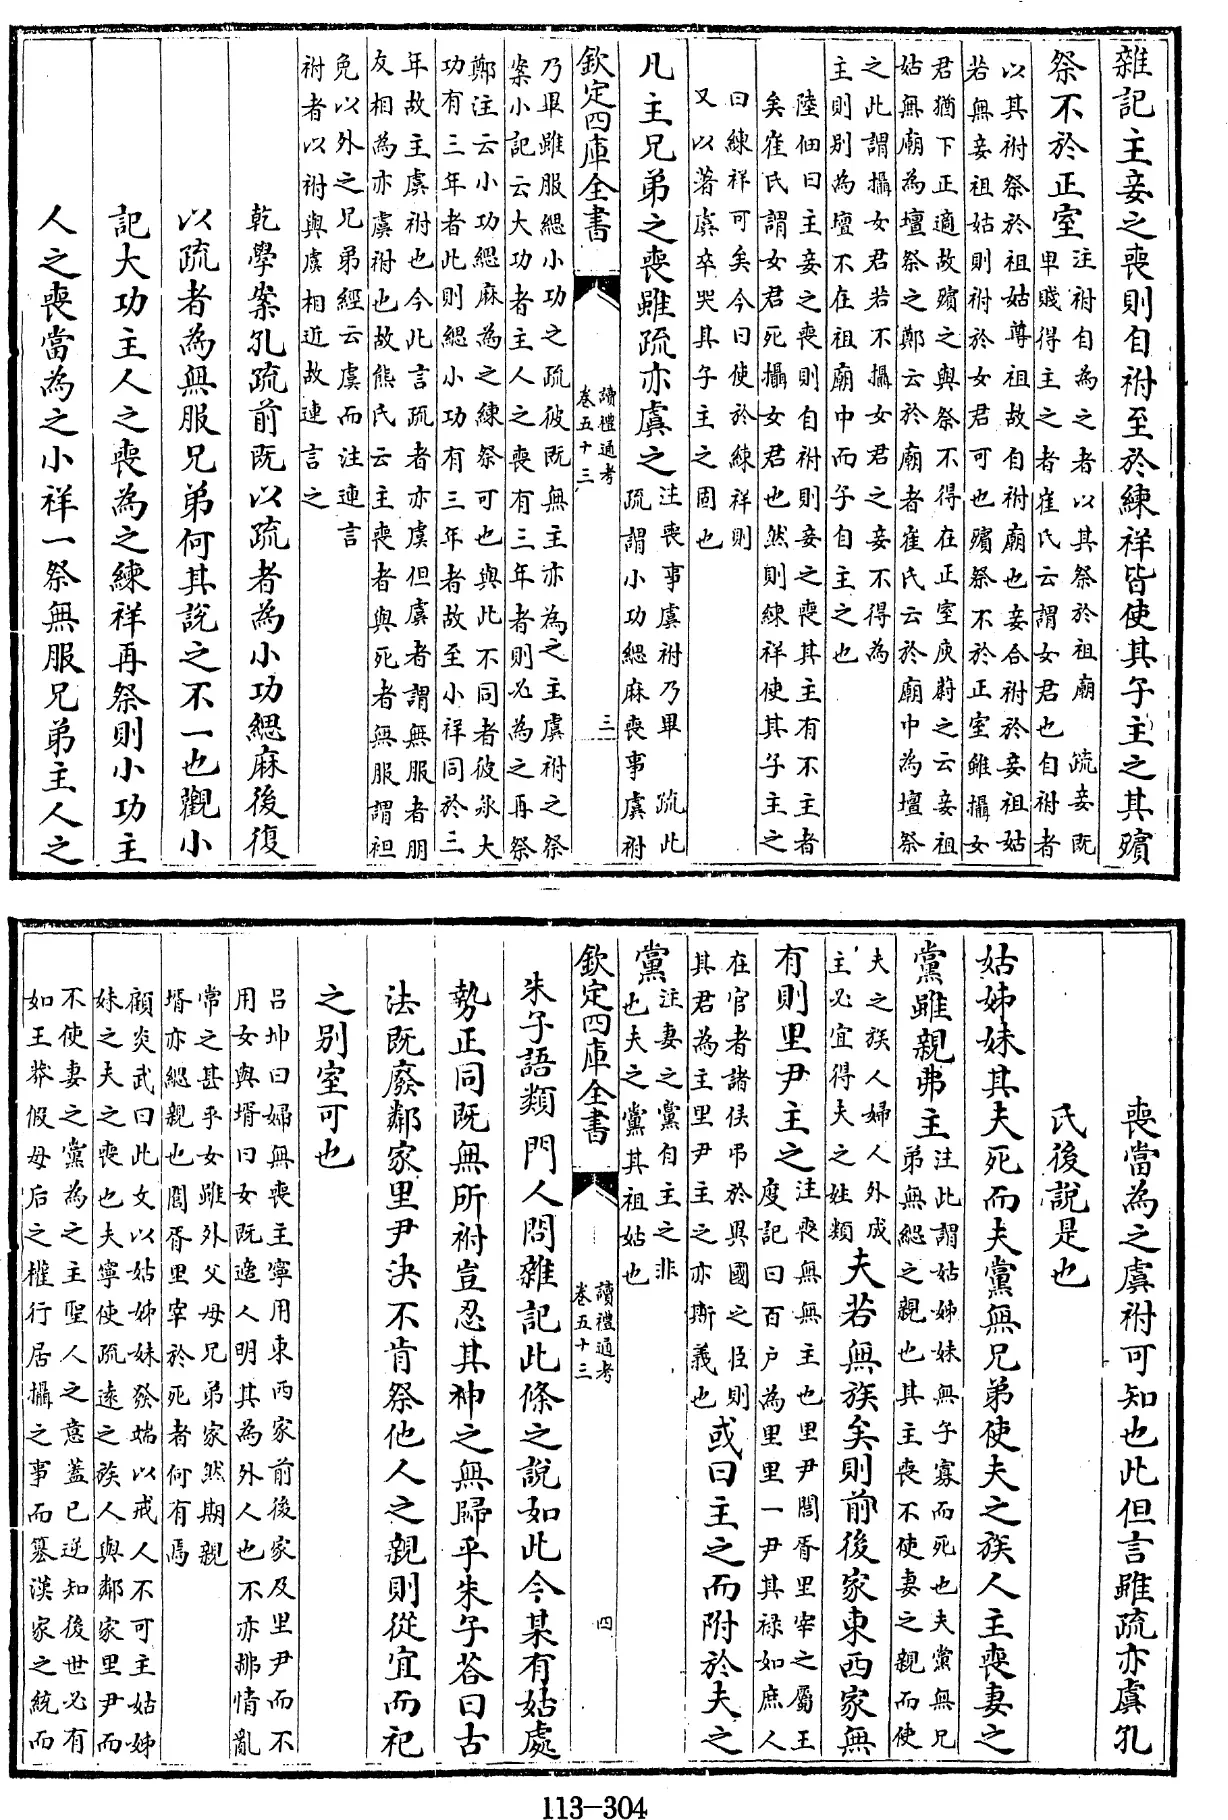 雜記主妾之喪則自祔至於練祥皆使其子主之其殯
祭不於正室注祔自為之者以其祭於祖廟　疏妾既
卑賤得主之者崔氏云謂女君也自祔者
以其祔祭於祖姑尊祖故自祔廟也妾合祔於妾祖姑
若無妾祖姑則祔於女君可也殯祭不於正室雖攝女
君猶下正適故殯之與祭不得在正室庾蔚之云妾祖
姑無廟為壇祭之鄭云於廟者崔氏云於廟中為壇祭
之此謂攝女君若不攝女君之妾不得為
主則別為壇不在祖廟中而子自主之也
陸佃曰主妾之喪則自祔則妾之喪其主有不主者
矣崔氏謂女君死攝女君也然則練祥使其子主之
曰練祥可矣今曰使於練祥則
又以著虞卒哭其子主之固也
凡主兄弟之喪雖疏亦虞之注喪事虞祔乃畢　疏此
疏謂小功緦麻喪事虞祔
欽定四庫全書
讀禮通考
卷五十三
三
乃畢雖服緦小功之疏彼既無主亦為之主虞祔之祭
案小記云大功者主人之喪有三年者則必為之再祭
鄭注云小功緦麻為之練祭可也與此不同者彼承大
功有三年者此則緦小功有三年者故至小祥同於三
年故主虞祔也今此言疏者亦虞但虞者謂無服者朋
友相為亦虞祔也故熊氏云主喪者與死者無服謂袒
免以外之兄弟經云虞而注連言
祔者以祔與虞相近故連言之
乾學案孔疏前既以疏者為小功緦麻後復
以疏者為無服兄弟何其說之不一也觀小
記大功主人之喪為之練祥再祭則小功主
人之喪當為之小祥一祭無服兄弟主人之
喪當為之虞祔可知也此但言雖疏亦虞孔
氏後說是也
姑姊妹其夫死而夫黨無兄弟使夫之族人主喪妻之
黨雖親弗主注此謂姑姊妹無子寡而死也夫黨無兄
弟無緦之親也其主喪不使妻之親而使
夫之族人婦人外成
主必宜得夫之姓類夫若無族矣則前後家東西家無
有則里尹主之注喪無無主也里尹閭胥里宰之屬王
度記曰百戶為里里一尹其祿如庶人
在官者諸侯弔於異國之臣則
其君為主里尹主之亦斯義也或曰主之而附於夫之
黨注妻之黨自主之非
也夫之黨其祖姑也
欽定四庫全書
讀禮通考
卷五十三
四
朱子語類門人問雜記此條之說如此今某有姑處
勢正同既無所祔豈忍其神之無歸乎朱子荅曰古
法既廢鄰家里尹決不肯祭他人之親則從宜而祀
之別室可也
呂坤曰婦無喪主寧用東西家前後家及里尹而不
用女與壻曰女既適人明其為外人也不亦拂情亂
常之甚乎女雖外父母兄弟家然期親
壻亦緦親也閭胥里宰於死者何有焉
顧炎武曰此文以姑姊妹發端以戒人不可主姑姊
妹之夫之喪也夫寧使疏遠之族人與鄰家里尹而
不使妻之黨為之主聖人之意蓋已逆知後世必有
如王莽假母后之權行居攝之事而簒漢家之統而
113-304